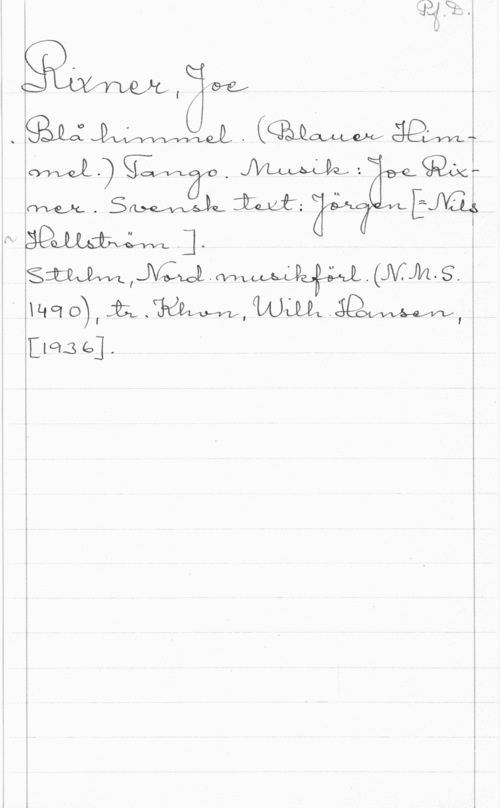 Pf. D.
Rixner, Joe
Blå himmel. (Blauer Him-
mel.) Tango. Musik: Joe Rix-
ner. Svensk text: Jörgen [= Nils
Hellström].
Sthlm, Nord. musikförl. (N.M.S.
1490), tr. Khvn, Wilh. Hansen,
[1936].